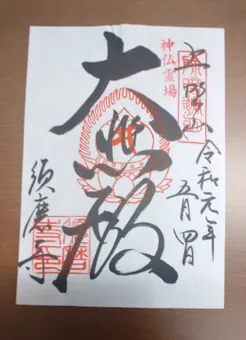 神仏霊場
令和元年
五月四日
大悲殿
須磨寺